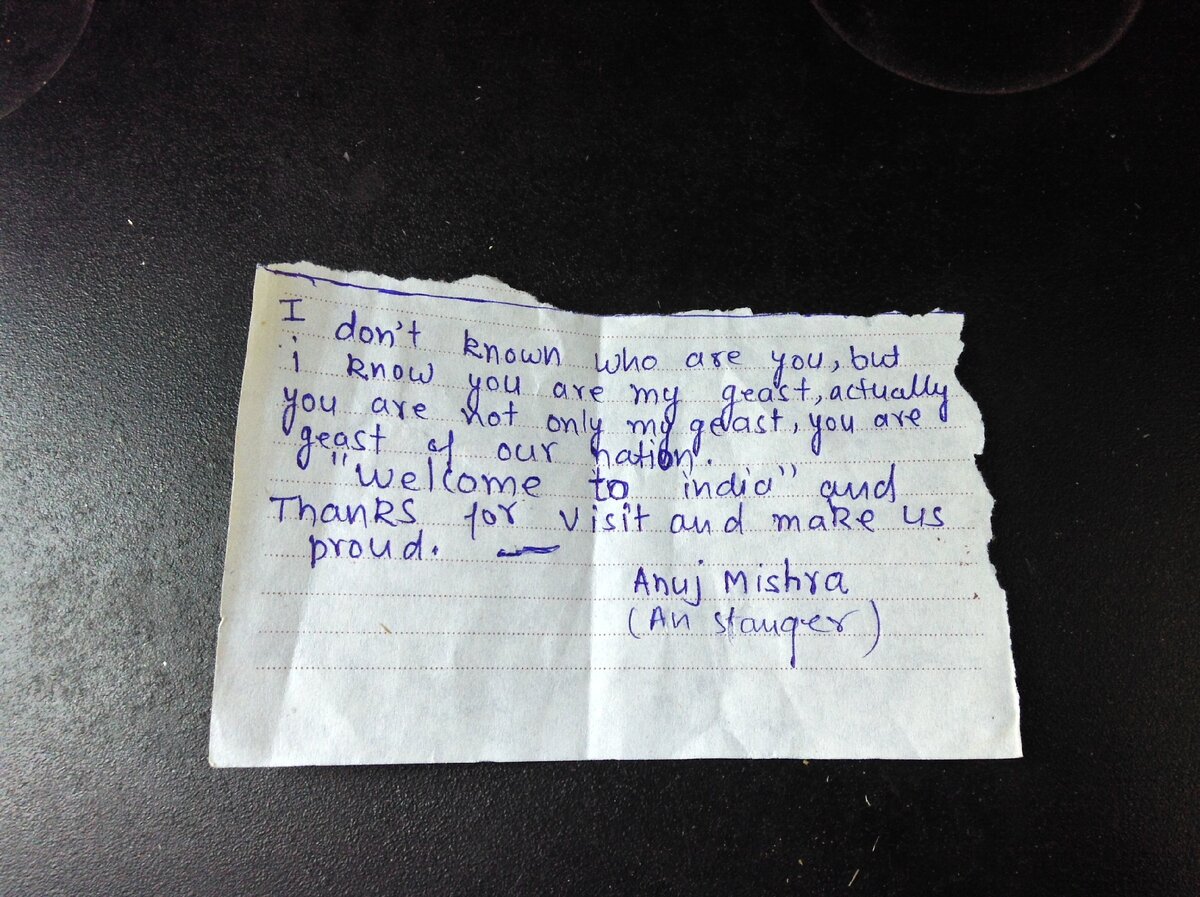 I don't known who are you, but
i know you are my geast, actually
you are not only my geast, you are
geast of our nation.
"Welcome to india" and
Thanks for visit and make us
proud.
Anuj Mishra
(An stanger)